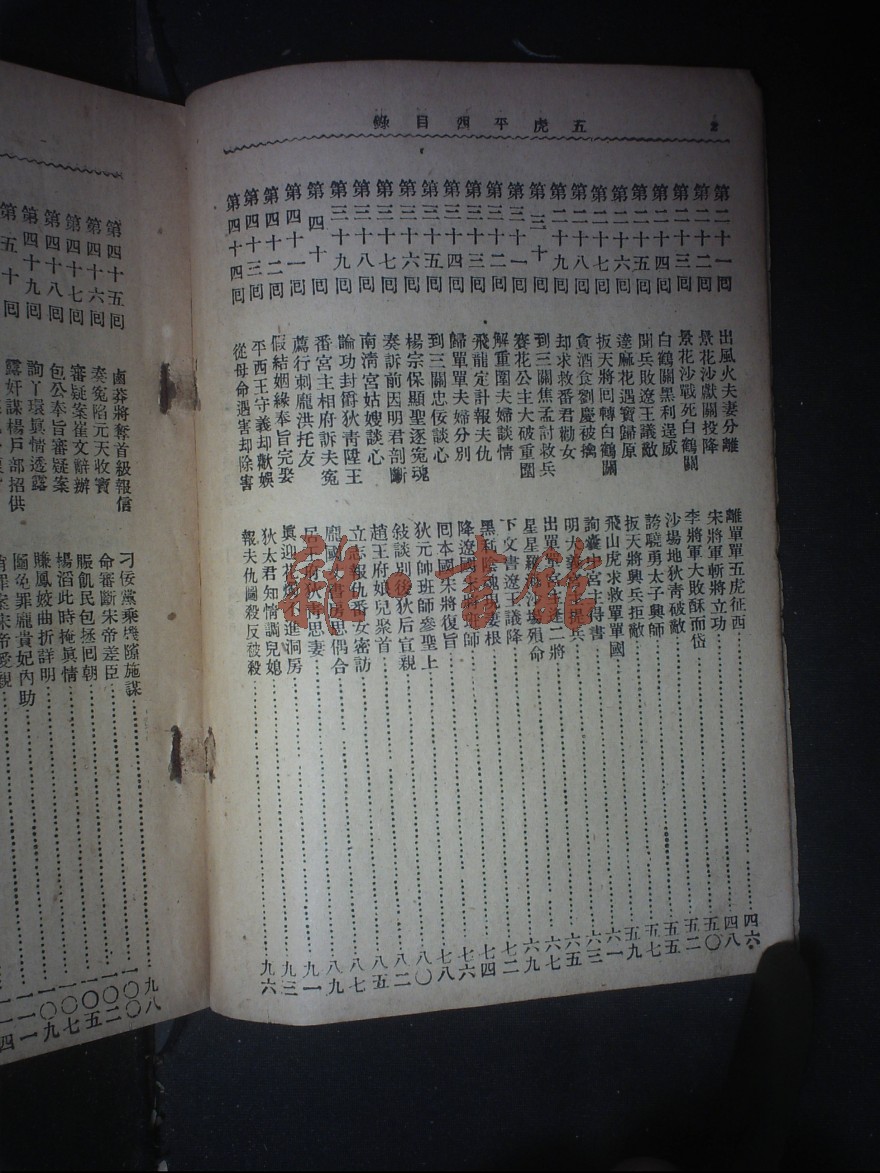 五虎平西目錄 2
第二十一囘 出風火夫妻分離 離單單五虎征西 四六
第二十二囘 景花沙獻關投降 宋將軍斬將立功 四八
第二十三囘 景花沙戰死白鶴關 李將軍大敗酥而岱 五〇
第二十四囘 白鶴關黑利逞威 沙場地狄靑破敵 五二
第二十五囘 聞兵敗遼王議敵 誇驍勇太子興師 五五
第二十六囘 達麻花遇寶歸原 扳天將興兵拒敵 五七
第二十七囘 扳天將囘轉白鶴關 飛山虎求救單單國 五九
第二十八囘 貪酒食劉慶被擒 詢囊中宮主得書 六一
第二十九囘 却求救番君勸女 明大義宮主提兵 六三
第三十囘 到三關焦孟討救兵 出單單宮主連二將 六五
第三十一囘 賽花公主大破重圍 星星羅海沙場殞命 六七
第三十二囘 解重圍夫婦談情 下文書遼王議降 六九
第三十三囘 飛龍定計報夫仇 黑新陰魂現妻根 七二
第三十四囘 歸單單夫婦分別 降遼國宋將班師 七四
第三十五囘 到三關忠佞談心 囘本國宋將復旨 七六
第三十六囘 楊宗保顯聖逐冤魂 狄元帥班師參聖上 七八
第三十七囘 奏訴前因明君剖斷 敍談別後狄后宣親 八〇
第三十八囘 南淸宮姑嫂談心 趙王府娘兒聚首 八二
第三十九囘 論功封爵狄靑陞王 立志報仇番女密訪 八五
第四十囘 番宮主相府訴夫冤 龐國丈書房思偶合 八七
第四十一囘 薦行刺龐洪托友 王府狄靑思妻 八九
第四十二囘 假結姻緣奉旨完婚 眞迎花燭不進洞房 九一
第四十三囘 平西王守義却歡娛 狄太君知情調兒媳 九三
第四十四囘 從母命遇害却除害 報夫仇圖殺反被殺 九六
第四十五囘 鹵莽將奪首級報信 刁佞黨乘機隙施謀 九八
第四十六囘 奏冤陷元天收寶 命審斷宋帝差臣 一〇〇
第四十七囘 審疑案崔文辭辦 賑飢民包拯囘朝 一〇二
第四十八囘 包公奉旨審疑案 楊滔此時掩眞情 一〇五
第四十九囘 詢丫環眞情透露 賺鳳姣曲折詳明 一〇七
第五十囘 露奸謀楊戶部招供 圖免罪龐貴妃內助
雜·書館